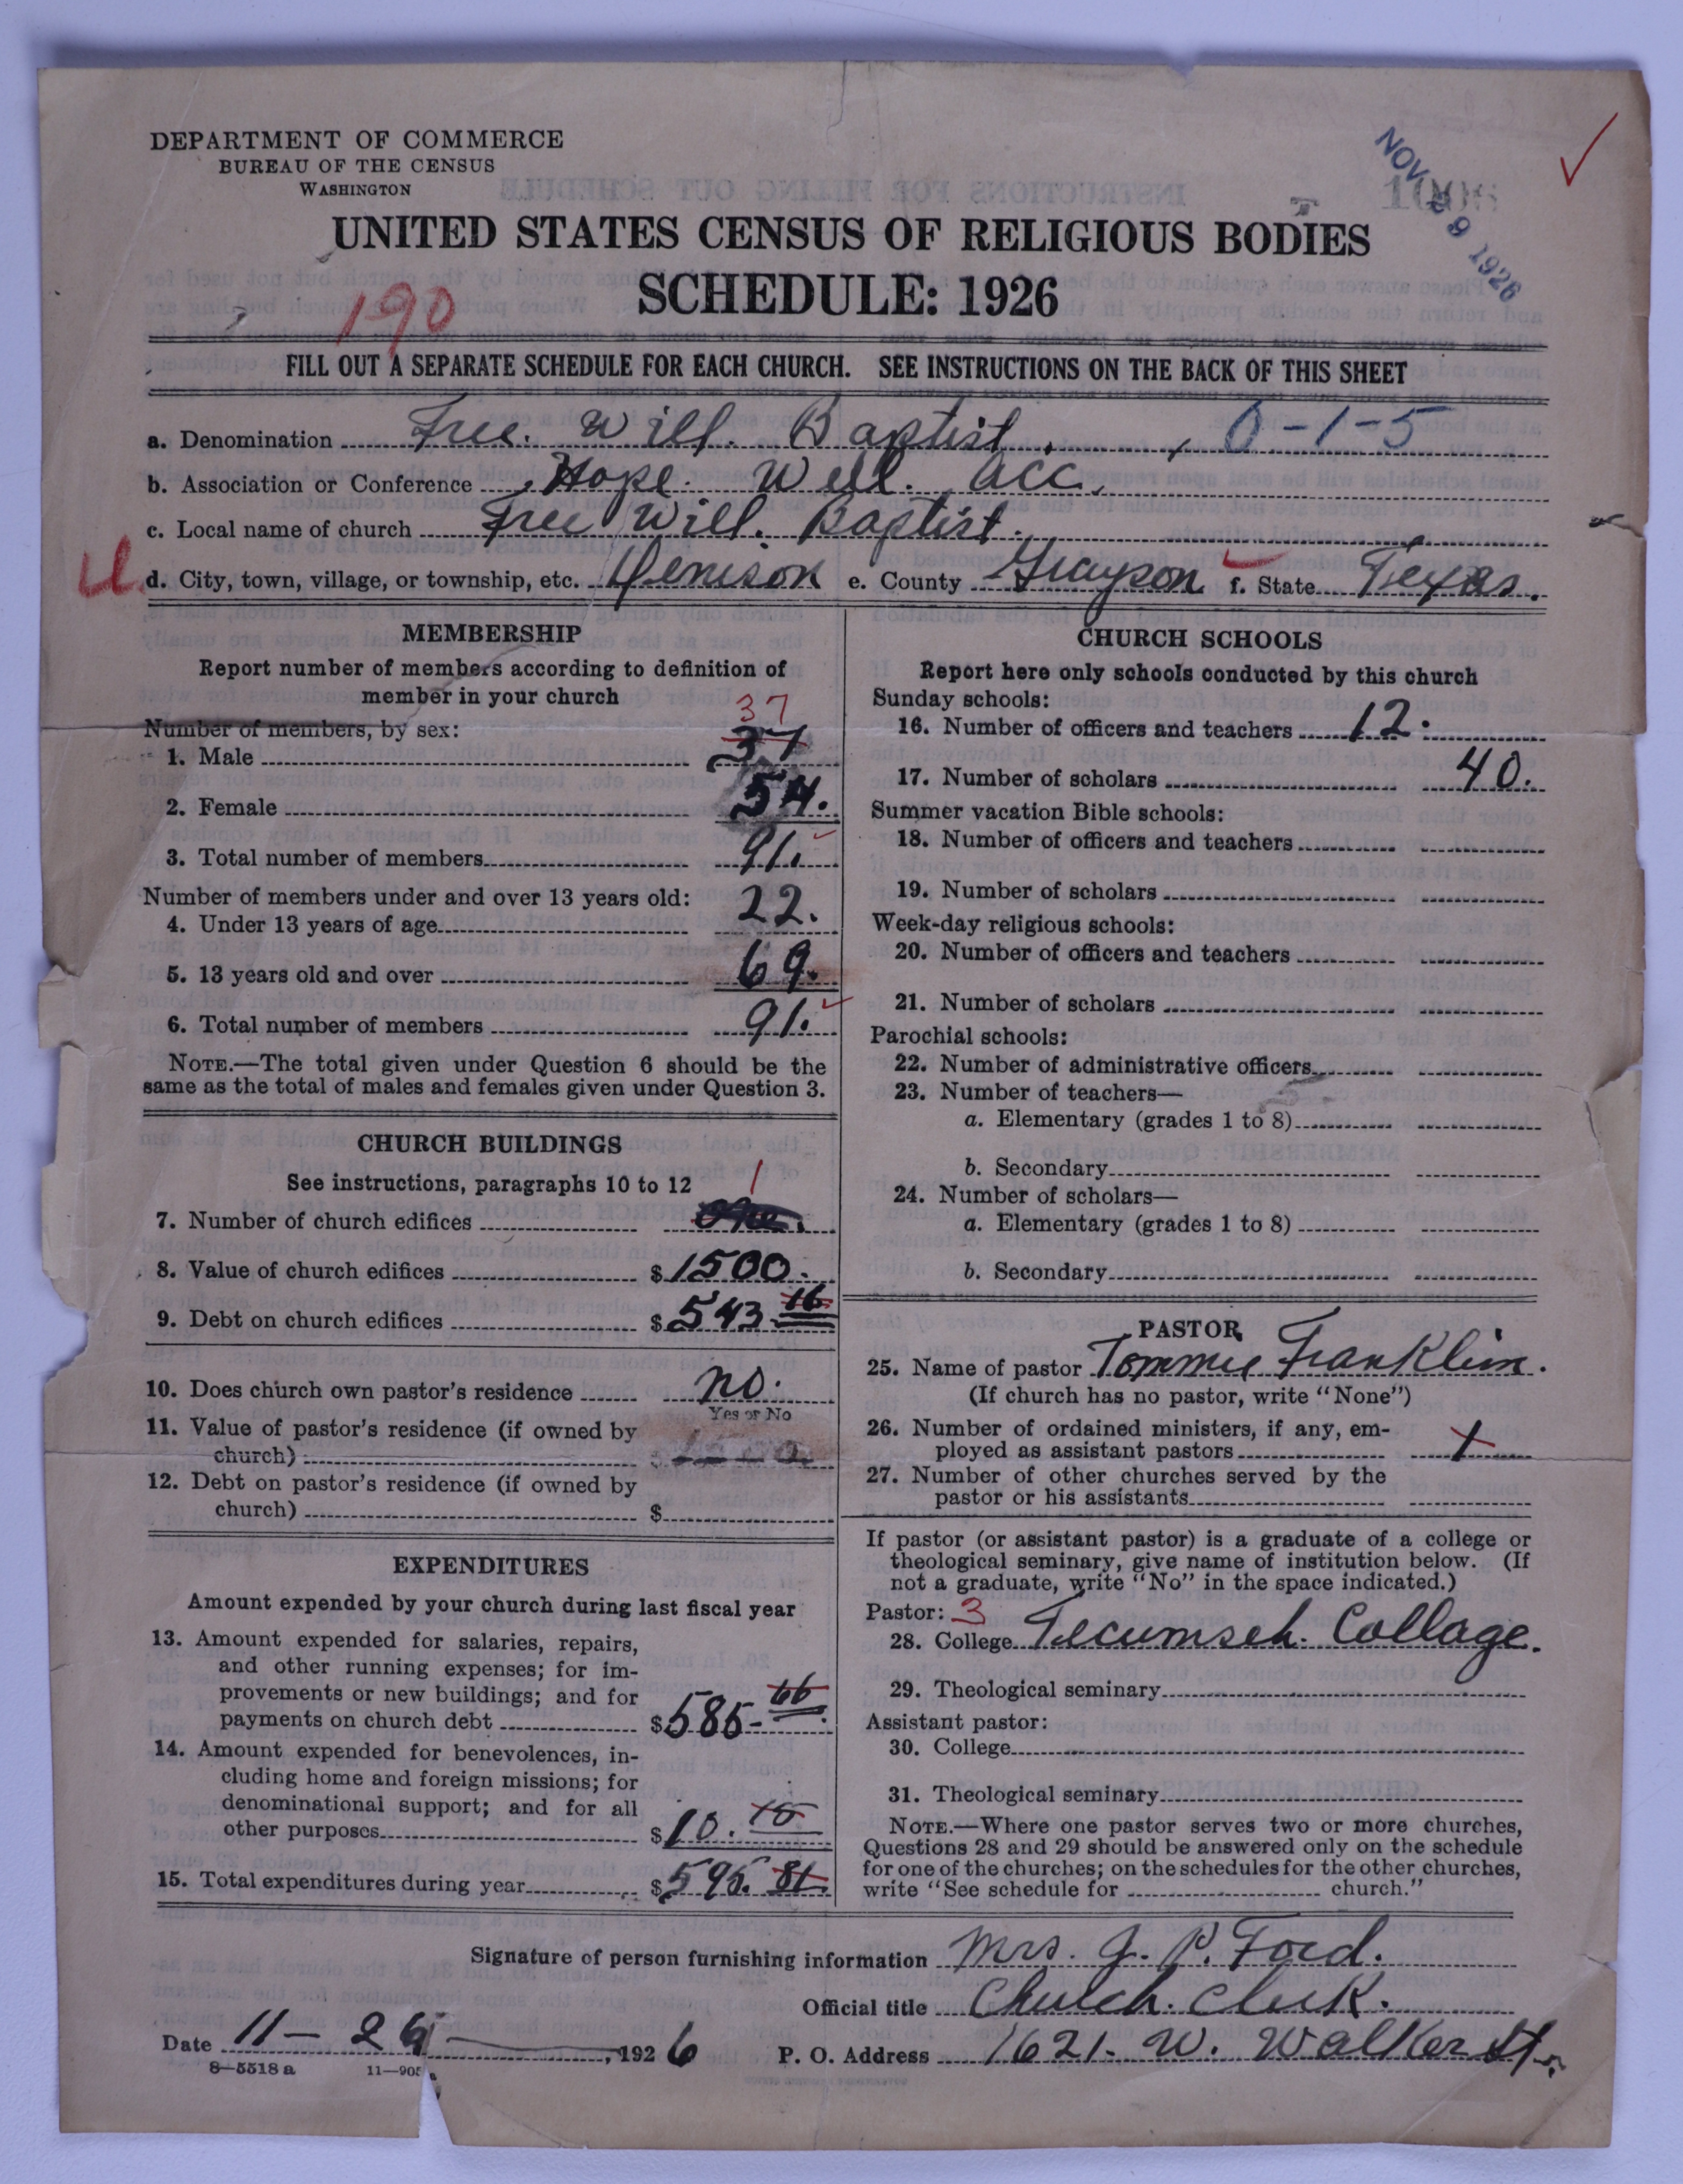 DEPARTMENT OF COMMERCE
BUREAU OF THE CENSUS
WASHINGTON
NOV 29 1926
UNITED STATES CENSUS OF RELIGIOUS BODIES
SCHEDULE: 1926
190
FILL OUT A SEPARATE SCHEDULE FOR EACH CHURCH. SEE INSTRUCTIONS ON THE BACK OF THIS SHEET
a. Denomination Free. Will. Baptist. 0-1-5
b. Association or Conference Hope. Well. acc.
c. Local name of church Free Will. Baptist.
U d. City, town, village, or township, etc. Denison e. County Grayson f. State Texas.
MEMBERSHIP
Report number of members according to definition of
member in your church
Number of members, by sex:
37
1. Male 37
2. Female 54.
3. Total number of members 91.
Number of members under and over 13 years old:
4. Under 13 years of age 22.
5. 13 years old and over 69.
6. Total number of members 91.
NOTE.—The total given under Question 6 should be the
same as the total of males and females given under Question 3.
CHURCH BUILDINGS
See instructions, paragraphs 10 to 12
1
7. Number of church edifices one.
8. Value of church edifices $1500.
9. Debt on church edifices $543.16
10. Does church own pastor's residence no.
Yes or No
11. Value of pastor's residence (if owned by
church)
12. Debt on pastor's residence (if owned by
church) $
EXPENDITURES
Amount expended by your church during last fiscal year
13. Amount expended for salaries, repairs,
and other running expenses; for im-
provements or new buildings; and for
payments on church debt $585-66
14. Amount expended for benevolences, in-
cluding home and foreign missions; for
denominational support; and for all
other purposes $10.15
15. Total expenditures during year $595.81.
CHURCH SCHOOLS
Report here only schools conducted by this church
Sunday schools:
16. Number of officers and teachers 12.
17. Number of scholars 40.
Summer vacation Bible schools:
18. Number of officers and teachers
19. Number of scholars
Week-day religious schools:
20. Number of officers and teachers
21. Number of scholars
Parochial schools:
22. Number of administrative officers
23. Number of teachers—
a. Elementary (grades 1 to 8)
b. Secondary
24. Number of scholars—
a. Elementary (grades 1 to 8)
b. Secondary
PASTOR
25. Name of pastor Tommie Franklin.
(If church has no pastor, write "None")
26. Number of ordained ministers, if any, em-
ployed as assistant pastors 1
27. Number of other churches served by the
pastor or his assistants
If pastor (or assistant pastor) is a graduate of a college or
theological seminary, give name of institution below. (If
not a graduate, write "No" in the space indicated.)
Pastor: 3
28. College Tecumseh. Collage.
29. Theological seminary
Assistant pastor:
30. College
31. Theological seminary
NOTE.—Where one pastor serves two or more churches,
Questions 28 and 29 should be answered only on the schedule
for one of the churches; on the schedules for the other churches,
write "See schedule for church."
Signature of person furnishing information Mrs. J. P. Ford.
Official title Church. Clerk.
Date 11- 26 , 1926 P. O. Address 1621. W. Walker St.
8—5518 a 11—905